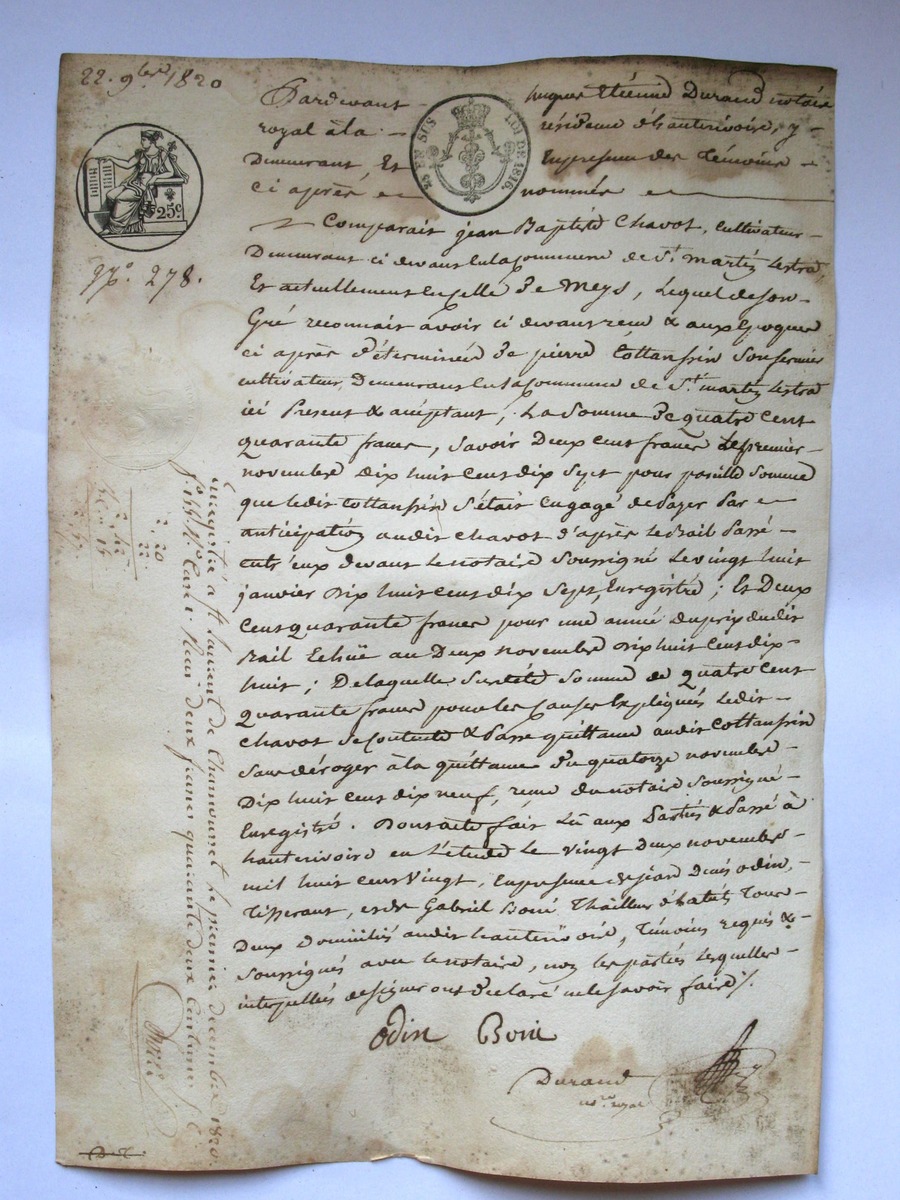 22. 9bre 1820
Pardevant hugues Etienne Durand notaire
royal à la résidence d'hauterivoire, y
Demeurant, Et En presence des Témoins
ci après nommés
EN SUS
LOI DE 1816.
25c.
No. 278.
Comparait jean Baptiste Chavot, cultivateur
Demeurant ci devant en la commune de St. martin Lestra,
Et actuellement en celle de Meys, Lequel de son
Gré reconnait avoir ci devant recu & aux Epoques
ci après déterminées de pierre Cottanssin son fermier
cultivateur, Demeurant en la commune de St. martin Lestra
ici Present & acceptant; La Somme de quatre cent
quarante francs, savoir Deux cent francs le premier
novembre dix huit cent dix sept pour pareille somme
que ledit Cottanssin s'était engagé de Payer Par
anticipation audit chavot d'après le Bail Passé
entr'eux devant le notaire soussigné le vingt huit
janvier dix huit cent dix sept, Enregistré; Et Deux
cent quarante francs pour une année du prix dudit
Bail Echue au Deux novembre dix huit cent dix-
huit; De laquelle susdite somme de quatre cent
quarante francs pour les causes Expliqués ledit
chavot se contente & Passe quittance audit Cottanssin
sans déroger à la quittance du quatorze novembre
Dix huit cent dix neuf, recue du notaire soussigné
Enregistré. Dont acte fait Lû aux Parties & Passé à
hauterivoire en l'étude le vingt deux novembre
mil huit cent vingt, En presence de jean Denis odin,
Tisserant, et de Gabriel Boué, Thailleur d'habits Tous
Deux domiciliés audit hauterivoire, Témoins requis &
soussignés avec le notaire, non les parties lesquelles
interpellés de signer ont déclaré ne le savoir faire /.
Odin Boué
Durand
nre royal
Enregistré à St Laurent de Chamousset le premier decembre 1820.
fo. 144 Vo. Case 1. Reçu deux francs quarante deux Centimes
2, 20
22
2, 42